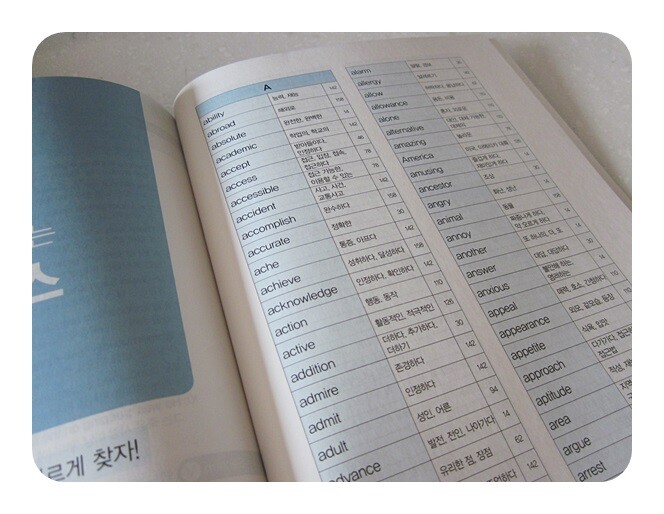 는
스
르게 찾자!
A
ability 능력, 재능 142
abroad 해외로 158
absolute 완전한, 완벽한 14
academic 학업의, 학교의 142
accept 받아들이다,
인정하다 46
access 접근, 입장, 접속,
접근하다 78
accessible 접근 가능한,
이용할 수 있는 78
accident 사고, 사건,
교통사고 142
accomplish 완수하다 158
accurate 정확한 30
ache 통증, 아프다 142
achieve 성취하다, 달성하다 158
acknowledge 인정하다, 확인하다 142
action 행동, 동작 110
active 활동적인, 적극적인 126
addition 더하다, 추가하다,
더하기 30
admire 존경하다 142
admit 인정하다 142
adult 성인, 어른 94
advance 발전, 전진, 나아가다 14
유리한 점, 장점 62
142
alarm
allergy
allow
allowance
alone
alternative
amazing 놀라운
America
amusing
ancestor 조상
angry
animal 동물
annoy
another 또 하나의, 더, 또
answer 대답, 대답하다
anxious
appeal 매력, 호소, 간청하다
appearance 외모, 겉모습, 등장
appetite 식욕, 입맛
approach 다가가다,
접근법
aptitude 적성,
area 지역
argue
arrest